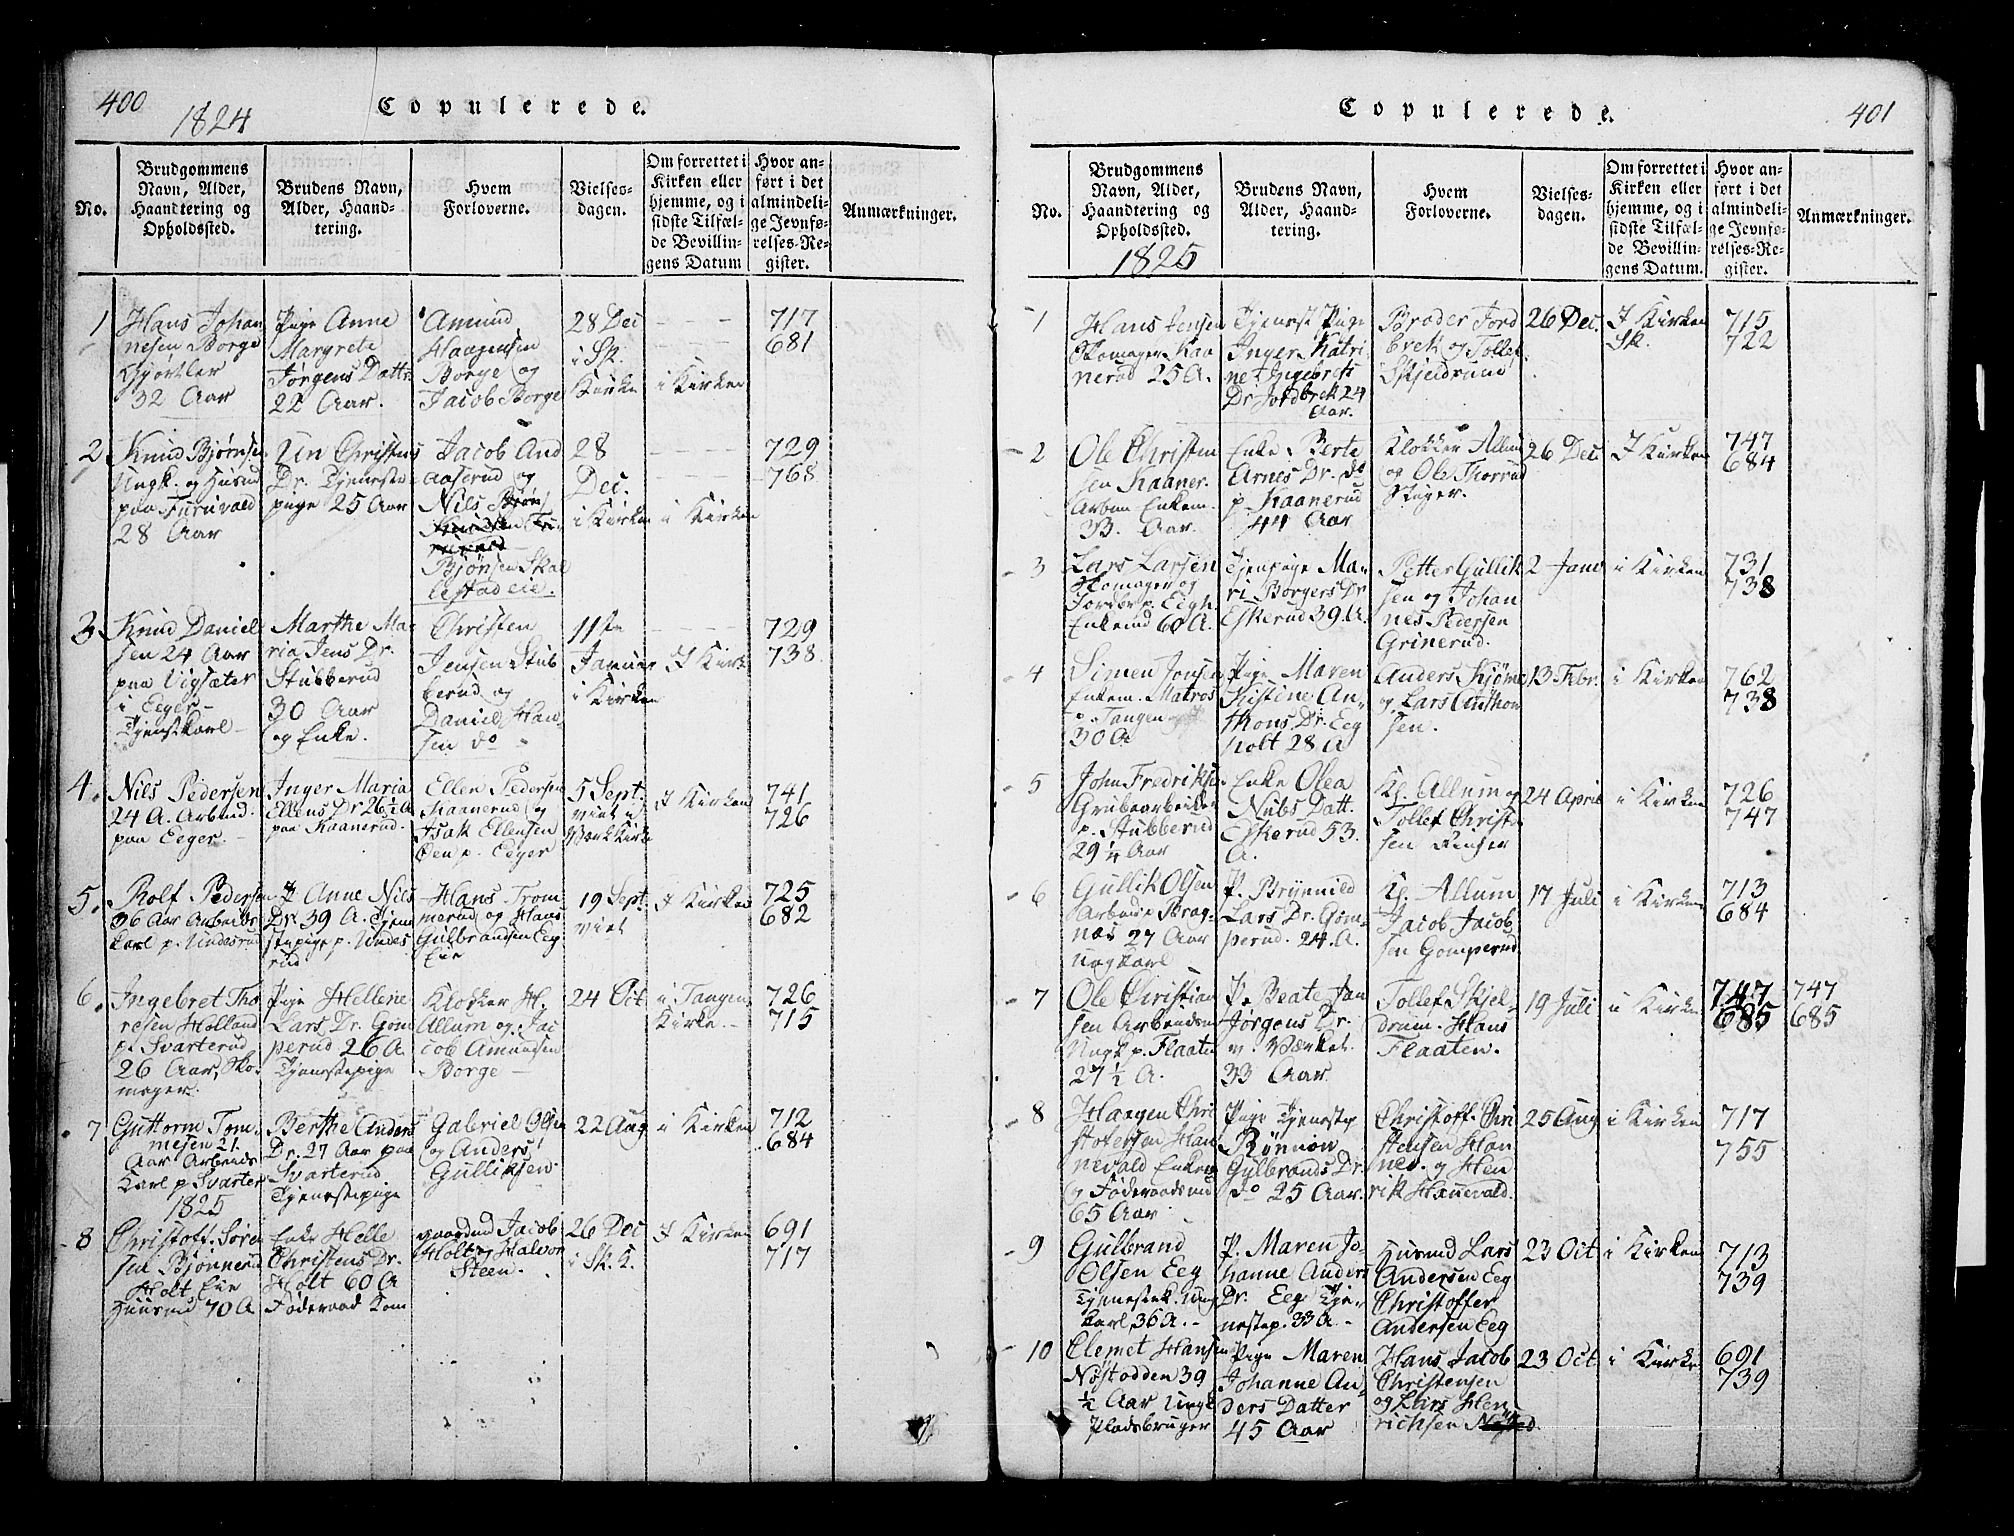 400
1824
Copulerede.
No.
Brudgommens
Navn, Alder,
Haandtering og
Opholdssted.
Brudens Navn,
Alder, Haand-
tering.
Hvem
Forloverne.
Vielses-
dagen.
Om forrettet i
Kirken eller
hjemme, og i
sidste Tilfæl-
de Bevillin-
gens Datum
Hvor an-
ført i det
almindeli-
ge Jevnfø-
relses-Re-
gister.
Anmærkninger.
1
Hans Johan
nesen Borge
32 Aar
Pige Anne
Margrete
Jørgens Dattr
22 Aar.
Amund
Haagensen
Borge og
Jacob Borge
28 Dec
i Sk.
Kirke
i Kirken
717
681
2
Knud Bjørnsen
Ungk. og Husmd
paa Furuvald
28 Aar
Christens
Dr. Tjeneste
pige 25 Aar
Jacob And
aaserud og
Nils
Bjønsen Skal
lestad eie.
28
Dec.
i Kirken
i Kirken
729
768
3
Knud Daniel
sen 24 Aar
paa Vigsæter
i Eeger-
Tjenstkarl-
Marthe Ma-
ria Jens Dr.
Stubberud
30 Aar
og Enke.
Christen
Jensen Stub
berud og
Daniel Han
sen do
11te
Januar
i Kirken
I Kirk
729
738
4.
Nils Pedersen
24 A. Arbmd.
paa Eeger.
Inger Maria
Ellens Dr 26 A
paa Kaanerud.
Ellen Pedersen
Kaanerud og
Isak Ellensen
Øen p. Eeger
5 Sept.
viet i
Værkkirke
I Kirken
741
726
5.
Rolf Pedersen
36 Aar Arbeids
karl p. Undesrud
P. Anne Nils
Dr. 39 A. Tjene
stepige p. Undes
rud
Hans Trom
merud og Hans
Gulbrandsen Eeg
Eie
19 Sept.
viet
I Kirken
725
682
6.
Ingebret Tho
resen Holland
p. Svarterud
26 Aar, Sko-
mager.
Pige Hellene
Lars Dr. Gom
perud 26 A.
Tjenestepige
Klokker H.
Allum og Jac
cob Amundsen
Borge
24 Oct
i Tangen
Kirke.
726
715
7
Guttorm Tom-
mesen 21.
Aar Arbeids
karl p Svarter
1825
Berthe Anders
Dr. 27 Aar paa
Svarterud
Tjenestepige
Gabriel Olsen
og Anders
Gulliksen.
22 Aug
i Kirken
712
684
8
Christoff. Søren
sen Bjønnerud
Holt Eie
Huusmd 70 A
Enke Helle
Christens Dr.
Holt 60 A
Føderaad Kom
gaardmd Jacob
Holt og Halvor
Steen.
26 Dec
i Sk. K.
I Kirken
691
717
Copulerede.
401
No.
Brudgommens
Navn, Alder,
Haandtering og
Opholdssted.
1825
Brudens Navn,
Alder, Haand-
tering.
Hvem
Forloverne.
Vielses-
dagen.
Om forrettet i
Kirken eller
hjemme, og i
sidste Tilfæl-
de Bevillin-
gens Datum.
Hvor an-
ført i det
almindeli-
ge Jevnfø-
relses-Re-
gister.
Anmærkninger.
1
Hans Jensen
Skomager Kaa
nerud 25 A.
Tjenest Pige
Inger Katri
ne Ingebrets
Dr Jordbrek 24
Aar.
Broder Jord
brek og Tollef
Skjeldrum
26 Dec.
I Kirken
Sk.
715
722
2
Ole Christen
sen Kaaner.
Arbm Enkem.
33. Aar.
Enke Berte
Arnes Dr. do
p. Kaanerud
44 Aar
Klokker Allum
og Ole Thorrud
26 Dec
I Kirken
747
684
3
Lars Larsen
Skomager og
Jordbr. p. Eegh.
Enkemd 60 A.
Tjenpige Ma-
ri Borgers Dr
Eskerud 39 A.
Petter Gullik
sen og Johan
nes Pedersen
Grinerud.
2 Janu
i Kirken
731
738
4
Simen Jonsen
Enkem. Matros
p. Tangen
30 A
Pige Maren
Kistine An-
thons Dr. Eeg
holt 28 A
Anders Skjøme
og Lars Anthon
sen.
13 Febr.
i Kirken
762
738
5
John Fredriksen
Grubearbeider
p. Stubberud
29 1/4 Aar
Enke Olea
Nubs Datt.
Eskerud 53.
A.
Kl. Allum og
Tollef Christen
sen
24 April
i Kirken
726
747
6
Gullik Olsen
Arbeid Brag-
næs 27 Aar
Ungkarl
P. Brynnild
Lars Dr. Gom-
perud. 24. A.
Kl. Allum
Jacob Jacob
sen Gomperud
17 Juli
i Kirken
713
684
7
Ole Christian
sen Arbeidsm
Ungk p. Flaaten
27 1/2 A.
P. Beate Jan
Jørgens Dr.
v. Værket.
33 Aar
Tollef Skjel-
drum. Hans
Flaaten.
19 Juli
i Kirken
747
685
747
685
8
Haagen Chri
stofersen Han
nevald Enkem
og Føderaadsmd
65 Aar
Pige Tjenestp
Rønnov
Gulbrands Dr
do 25 Aar.
Christoff. Chri
stensen Han
nev. og Hen
rik Hannevald.
25 Aug
i Kirken
717
755
9
Gulbrand
Olsen Eeg
Tjenestek. Ung
karl 36 A.-
P. Maren Jo-
hanne Anders
Dr. Eeg Tje-
nestep. 33 A.-
Husmd Lars
Andersen Eeg
Christoffer
Andersen Eeg
23 Oct
i Kirken
713
739
10
Clemet Hansen
Nøstodden 39
1/2 Aar Ungk
Pladsbruger
Pige Maren
Johanne An-
ders Datter
45 Aar
Hans Jacob
Christensen
og Lars Hen
richsen
23 Oct
i Kirke
691
739